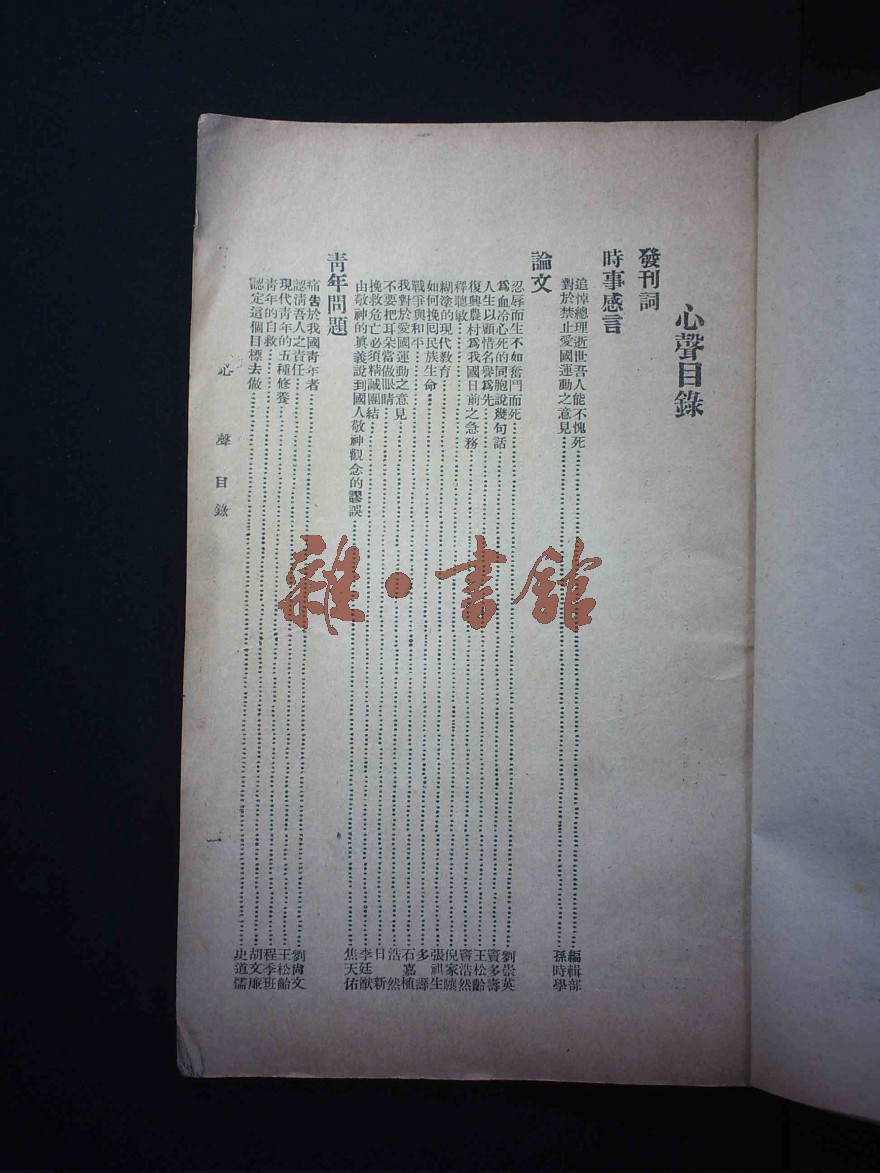 心聲目錄
發刊詞
時事感言
追悼總理逝世吾人能不愧死……編輯部
對於禁止愛國運動之意見……孫時學
論文
忍辱而生不如奮鬥而死……劉崇英
爲血冷心死的同胞說幾句話……竇多壽
人生以顧惜名譽爲先……王松齡
復興農村爲我國日前之急務……竇浩然
釋聰敏……倪家驤
糊塗的現代教育……張祖生
如何挽回民族生命……多
戰爭與和平……石嘉植
我對於愛國運動之意見……浩然
不要把耳朵當做眼睛……日新
挽救危亡必須精誠團結……李廷猷
由敬神的眞義說到國人敬神觀念的謬誤……焦天佑
靑年問題
痛告於我國靑年者……劉尙文
認淸吾人之責任……王松齡
現代靑年的五種修養……程季班
靑年的自救……胡文廉
認定這個目標去做……史道儒
心聲目錄
一
雜·書館